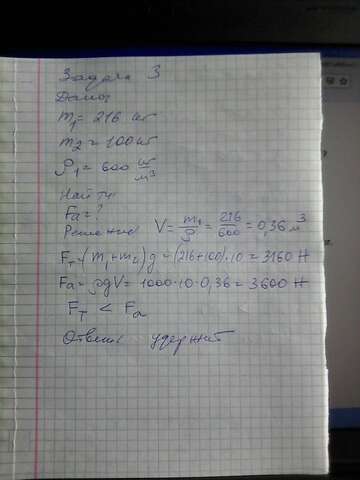 Задача 3
Дано
m₁ = 216 кг
m₂ = 100 кг
ρ₁ = 600 кг/м³
Найти
Fa = ?
Решение V = m₁/ρ = 216/600 = 0,36 м³
Fт = (m₁+m₂)g = (216+100)·10 = 3160 Н
Fa = ρgV = 1000·10·0,36 = 3600 Н
Fт < Fa
Ответ: удержит